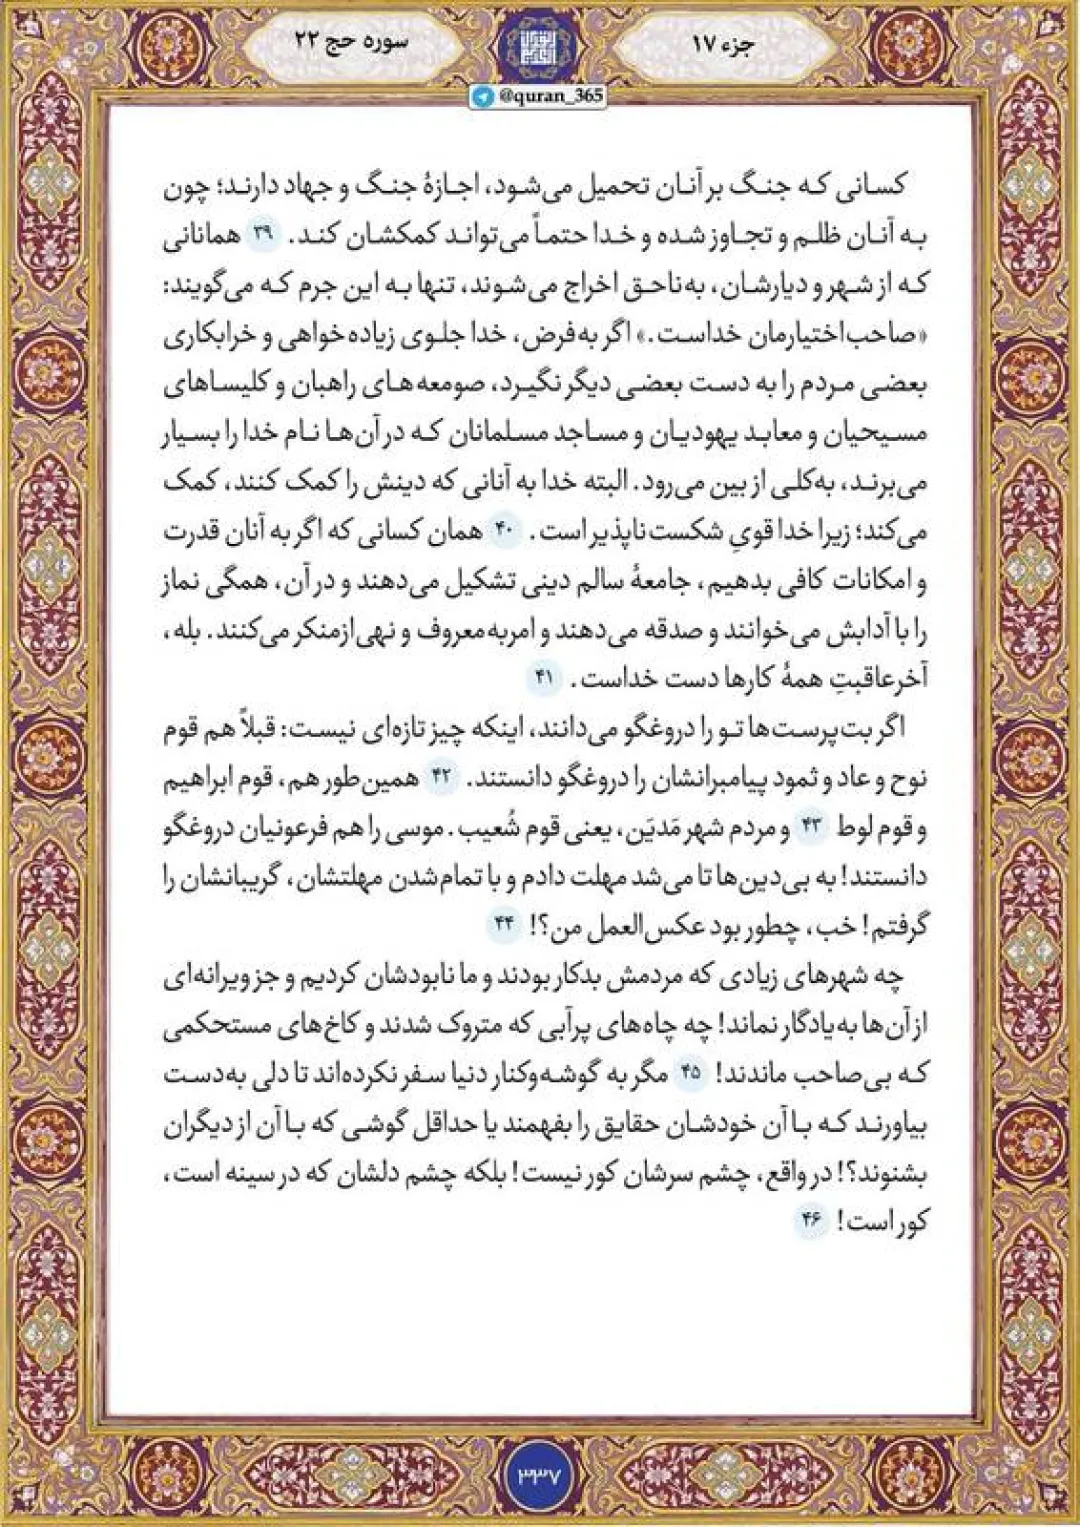 جزء ۱۷
سوره حج ۲۲
@quran_365
کسانی که جنگ بر آنان تحمیل می‌شود، اجازهٔ جنگ و جهاد دارند؛ چون
به آنان ظلم و تجاوز شده و خدا حتماً می‌تواند کمکشان کند. ۳۹ همانانی
که از شهر و دیارشان، به‌ناحق اخراج می‌شوند، تنها به این جرم که می‌گویند:
«صاحب‌اختیارمان خداست.» اگر به‌فرض، خدا جلوی زیاده‌خواهی و خرابکاری
بعضی مردم را به دست بعضی دیگر نگیرد، صومعه‌های راهبان و کلیساهای
مسیحیان و معابد یهودیان و مساجد مسلمانان که در آن‌ها نام خدا را بسیار
می‌برند، به‌کلی از بین می‌رود. البته خدا به آنانی که دینش را کمک کنند، کمک
می‌کند؛ زیرا خدا قویِ شکست‌ناپذیر است. ۴۰ همان کسانی که اگر به آنان قدرت
و امکانات کافی بدهیم، جامعهٔ سالم دینی تشکیل می‌دهند و در آن، همگی نماز
را با آدابش می‌خوانند و صدقه می‌دهند و امربه‌معروف و نهی‌ازمنکر می‌کنند. بله،
آخرعاقبتِ همهٔ کارها دست خداست. ۴۱
اگر بت‌پرست‌ها تو را دروغگو می‌دانند، اینکه چیز تازه‌ای نیست: قبلاً هم قوم
نوح و عاد و ثمود پیامبرانشان را دروغگو دانستند. ۴۲ همین‌طور هم، قوم ابراهیم
و قوم لوط ۴۳ و مردم شهر مَدیَن، یعنی قوم شُعیب. موسی را هم فرعونیان دروغگو
دانستند! به بی‌دین‌ها تا می‌شد مهلت دادم و با تمام‌شدن مهلتشان، گریبانشان را
گرفتم! خب، چطور بود عکس‌العمل من؟! ۴۴
چه شهرهای زیادی که مردمش بدکار بودند و ما نابودشان کردیم و جز ویرانه‌ای
از آن‌ها به‌یادگار نماند! چه چاه‌های پرآبی که متروک شدند و کاخ‌های مستحکمی
که بی‌صاحب ماندند! ۴۵ مگر به گوشه‌وکنار دنیا سفر نکرده‌اند تا دلی به‌دست
بیاورند که با آن خودشان حقایق را بفهمند یا حداقل گوشی که با آن از دیگران
بشنوند؟! در واقع، چشم سرشان کور نیست! بلکه چشم دلشان که در سینه است،
کور است! ۴۶
۳۳۷